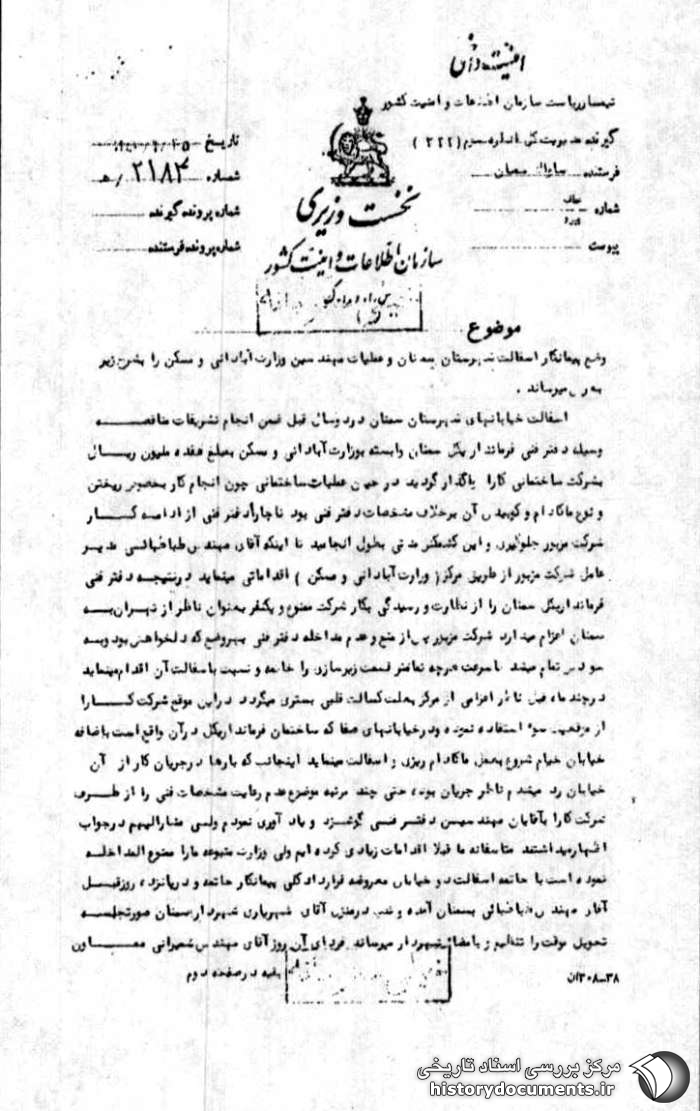 تیمسار ریاست سازمان اطلاعات و امنیت کشور
گیرنده مدیریت کل اداره سوم (۳۲۲)
فرستنده ساواک سمنان
شماره
پیوست
تاریخ
شماره ۲۱۸۴ / ه‍
شماره پرونده گیرنده
شماره پرونده فرستنده
نخست وزیری
سازمان اطلاعات و امنیت کشور
موضوع
وضع پیمانکار اسفالت شهرستان سمنان و عملیات مهندسین وزارت آبادانی و مسکن را بشرح زیر
بعرض میرساند .
اسفالت خیابانهای شهرستان سمنان در دو سال قبل ضمن انجام تشریفات مناقصه
وسیله دفتر فنی فرمانداریکل سمنان وابسته بوزارت آبادانی و مسکن بمبلغ هفده ملیون ریال
بشرکت ساختمانی کارا واگذار گردید در حین عملیات ساختمانی چون انجام کار بخصوص ریختن
و نوع ماکادام و کوبیدن آن برخلاف مشخصات دفتر فنی بود ناچارا دفتر فنی از ادامه کار
شرکت مزبور جلوگیری و این کشمکش مدتی بطول انجامید تا اینکه آقای مهندس طباطبائی مدیر
عامل شرکت مزبور از طریق مرکز ( وزارت آبادانی و مسکن ) اقداماتی مینماید در نتیجه دفتر فنی
فرمانداریکل سمنان را از نظارت و رسیدگی بکار شرکت ممنوع و یکنفر بعنوان ناظر از تهران به
سمنان اعزام میدارد شرکت مزبور پس از منع و عدم مداخله دفتر فنی بهر وضع که دلخواهش بود و به
سودش تمام میشد با سرعت هرچه تمامتر قسمت زیرسازی را خاتمه و نسبت باسفالت آن اقدام مینماید
در چند ماه قبل ناظر اعزامی از مرکز بعلت کسالت قلبی بستری میگردد در این موقع شرکت کارا
از موقعیت سوء استفاده نموده و در خیابانهای صفا که ساختمان فرمانداریکل در آن واقع است باضافه
خیابان خیام شروع بعمل ماکادام ریزی و اسفالت مینماید اینجانب که بارها در جریان کار از آن
خیابان رد میشدم ناظر جریان بوده حتی چند مرتبه موضوع عدم رعایت مشخصات فنی را از طرف
شرکت کارا بآقایان مهندسین دفتر فنی گوشزد و یاد آوری نمودم ولی مشارالیهم در جواب
اظهار میداشتند متاسفانه ما قبلا اقدامات زیادی کرده ایم ولی وزارت متبوعه ما را ممنوع المداخله
نموده است با خاتمه اسفالت دو خیابان معروضه قرارداد کلی پیمانکار خاتمه و در پانزده روز قبل
آقای مهندس طباطبائی بسمنان آمده و شب در منزل آقای شهریاری شهردار سمنان صورتجلسه
تحویل موقت را تنظیم و بامضاء شهردار میرساند فردای آن روز آقای مهندس شمیرانی معاون
بقیه در صفحه دوم
مرکز بررسی اسناد تاریخی
historydocuments.ir